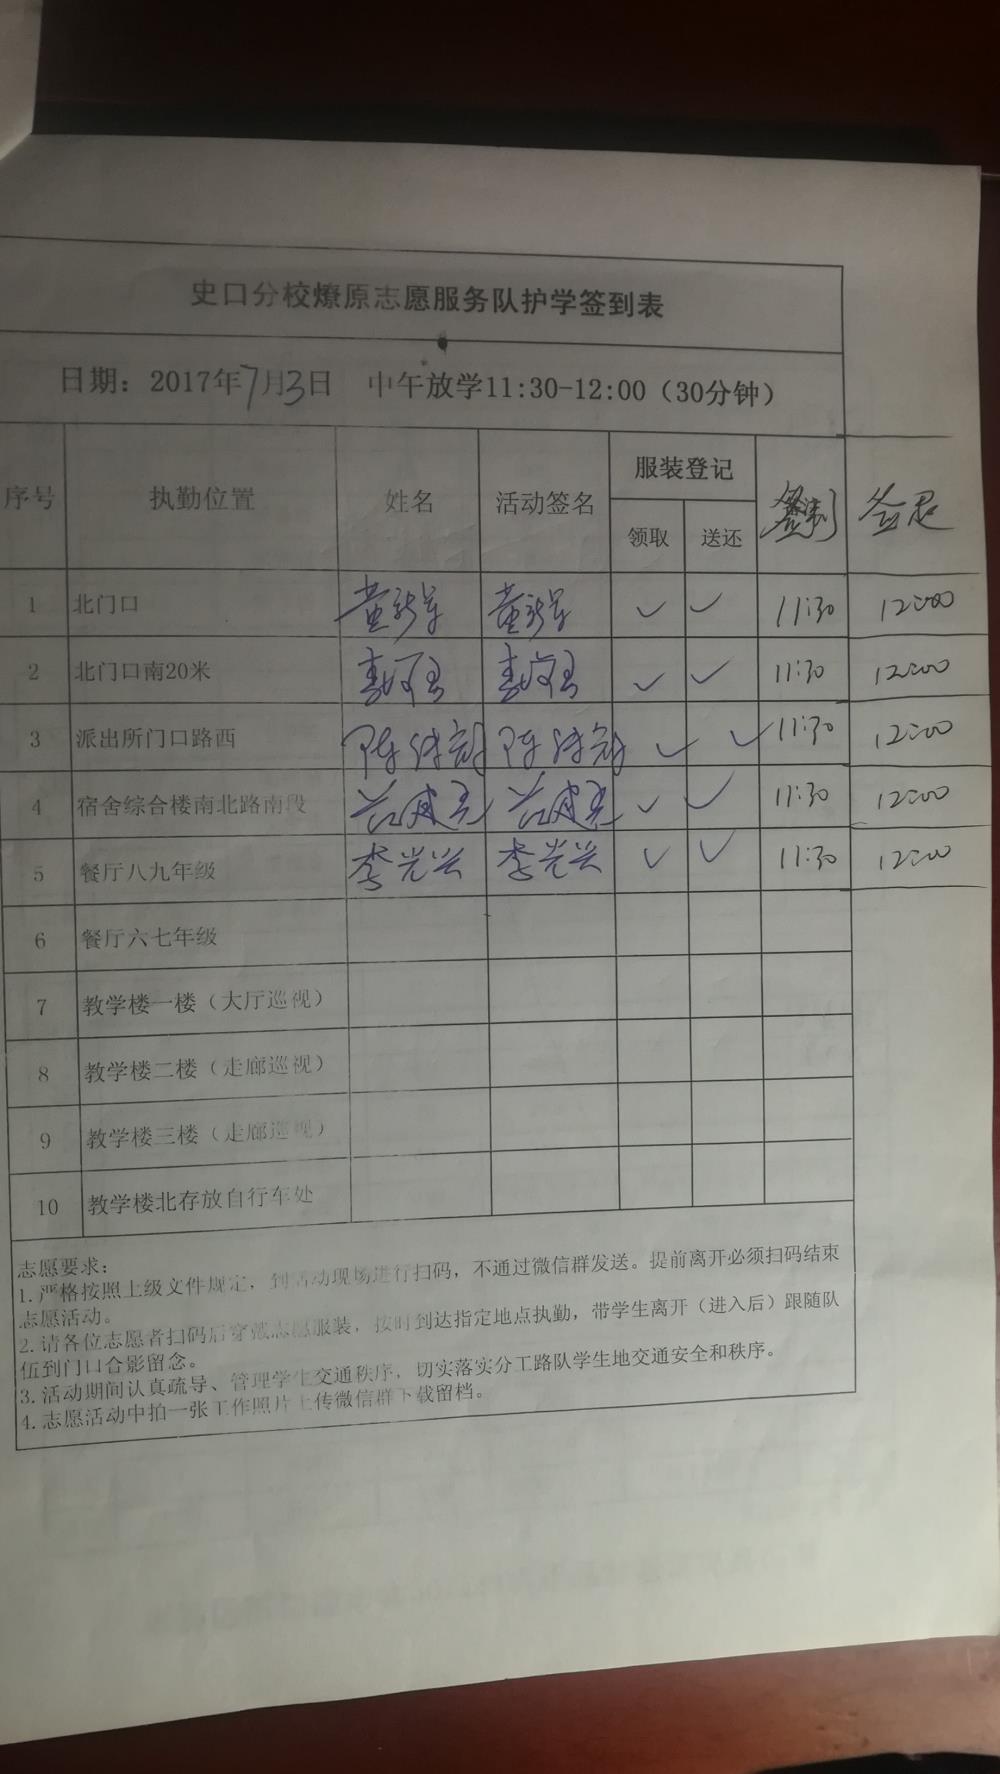 史口分校燎原志愿服务队护学签到表
日期：2017年7月3日 中午放学11:30-12:00（30分钟）
序号 执勤位置 姓名 活动签名 服装登记 签到 签退
领取 送还
1 北门口 黄新军 黄新军 ✓ ✓ 11:30 12:00
2 北门口南20米 ✓ ✓ 11:30 12:00
3 派出所门口路西 ✓ ✓ 11:30 12:00
4 宿舍综合楼南北路南段 ✓ ✓ 11:30 12:00
5 餐厅八九年级 李光兴 李光兴 ✓ ✓ 11:30 12:00
6 餐厅六七年级
7 教学楼一楼（大厅巡视）
8 教学楼二楼（走廊巡视）
9 教学楼三楼（走廊巡视）
10 教学楼北存放自行车处
志愿要求：
1.严格按照上级文件规定，到活动现场进行扫码，不通过微信群发送。提前离开必须扫码结束
志愿活动。
2.请各位志愿者扫码后穿戴志愿服装，按时到达指定地点执勤，带学生离开（进入后）跟随队
伍到门口合影留念。
3.活动期间认真疏导、管理学生交通秩序，切实落实分工路队学生地交通安全和秩序。
4.志愿活动中拍一张工作照片上传微信群下载留档。